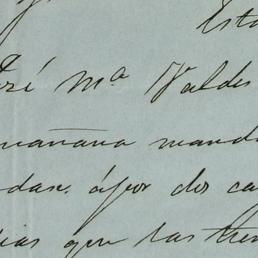 Esta
José Mª Valdes
mañana manda
dase, á por dos ca
ias que las tien